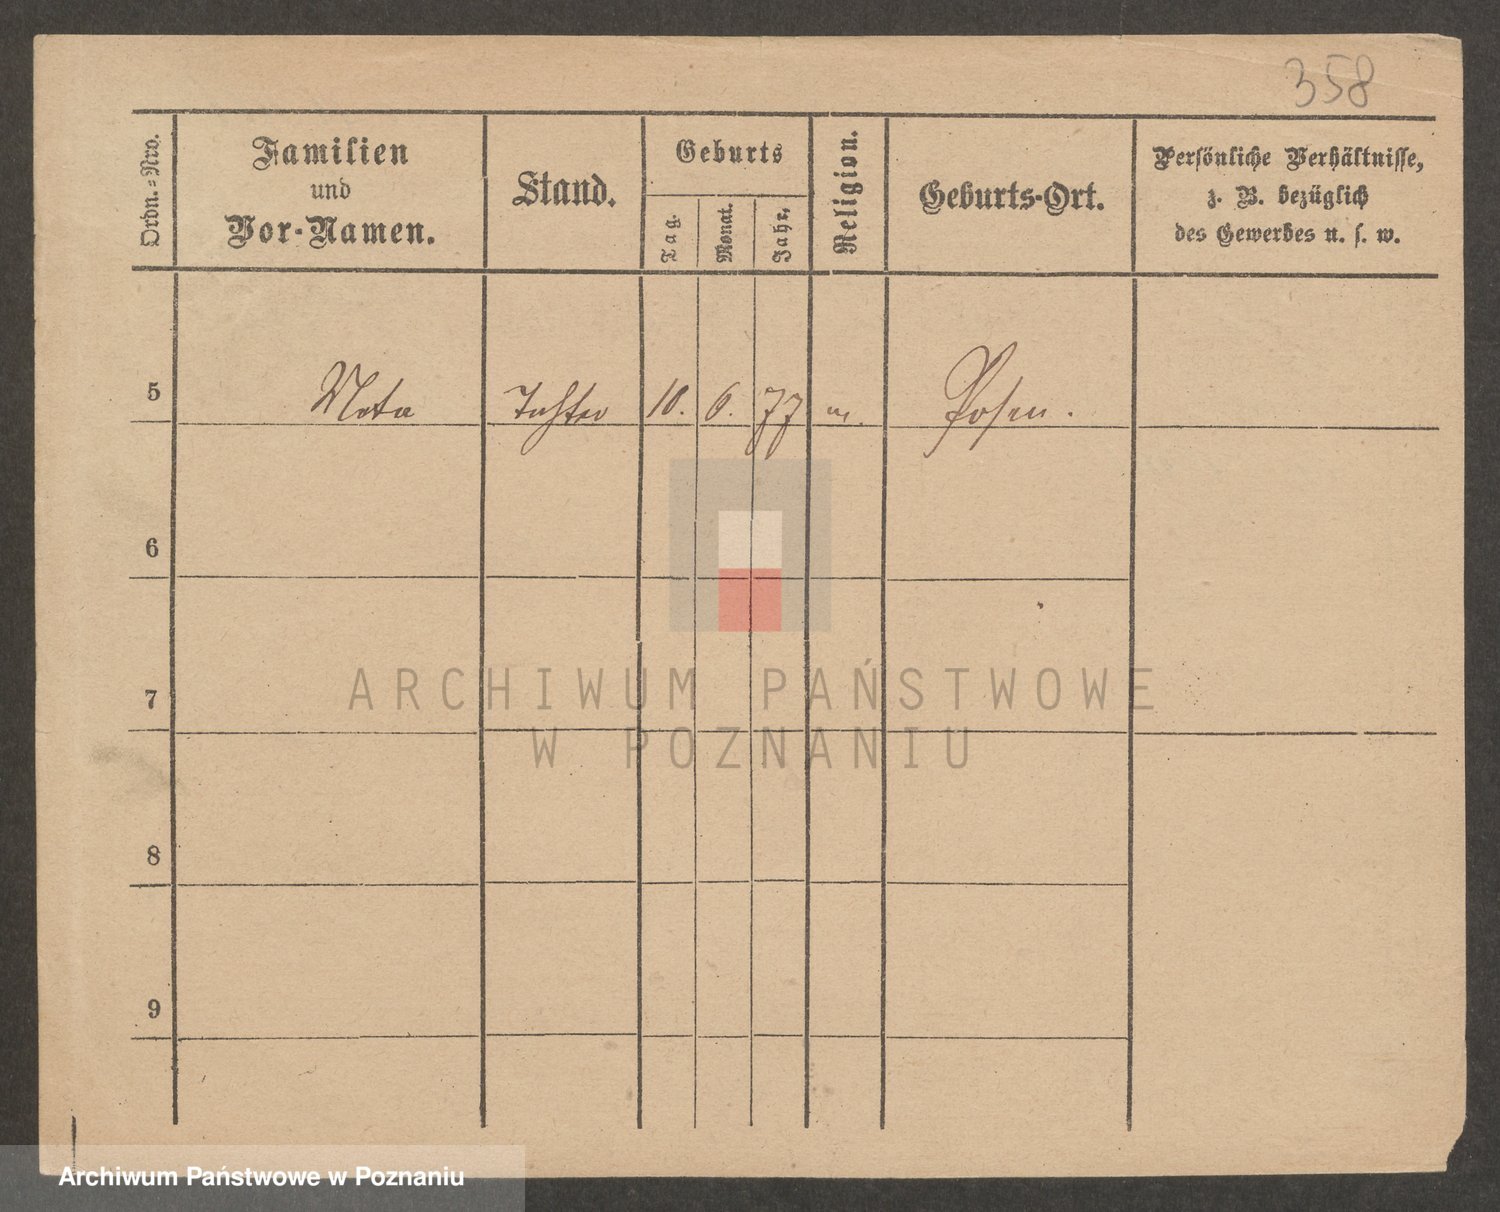 358
Ordn.=Nro.
Familien
und
Vor-Namen.
Stand.
Geburts
Tag.
Monat.
Jahr.
Religion.
Geburts-Ort.
Persönliche Verhältnisse,
z. B. bezüglich
des Gewerbes u. s. w.
5 Meta Tochter 10. 6. 77 Posen.
6
7
8
9
ARCHIWUM PAŃSTWOWE
W POZNANIU
Archiwum Państwowe w Poznaniu